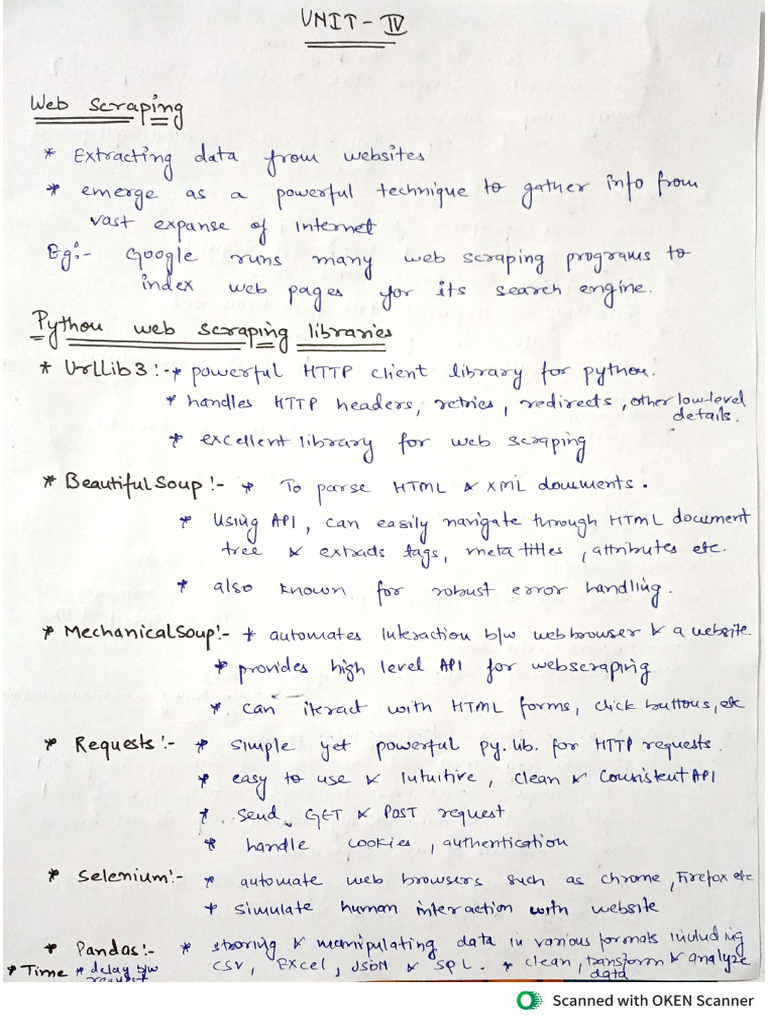 UNIT - IV
Web Scraping
* Extracting data from websites
* emerge as a powerful technique to gather info from
vast expanse of Internet
Eg:- Google runs many web scraping programs to
index web pages for its search engine.
Python web scraping libraries
* UrlLib3 :- * powerful HTTP client library for python.
* handles HTTP headers, retries, redirects, other low-level
details.
* excellent library for web scraping
* BeautifulSoup :- * To parse HTML & XML documents.
* Using API, can easily navigate through HTML document
tree & extracts tags, meta titles, attributes etc.
* also known for robust error handling.
* MechanicalSoup :- * automates Interaction b/w web browser & a website.
* provides high level API for webscraping
* can iteract with HTML forms, click buttons, etc
* Requests :- * simple yet powerful py. lib. for HTTP requests.
* easy to use & Intuitive, clean & Consistent API
* send GET & POST request
* handle cookies, authentication
* Selenium :- * automate web browsers such as chrome, Firefox etc
* simulate human interaction with website
* Pandas :- * storing & manipulating data in various formats including
CSV, EXCEL, JSON & SQL. * clean, transform & analyze
data
* Time * delay b/w
request
Scanned with OKEN Scanner